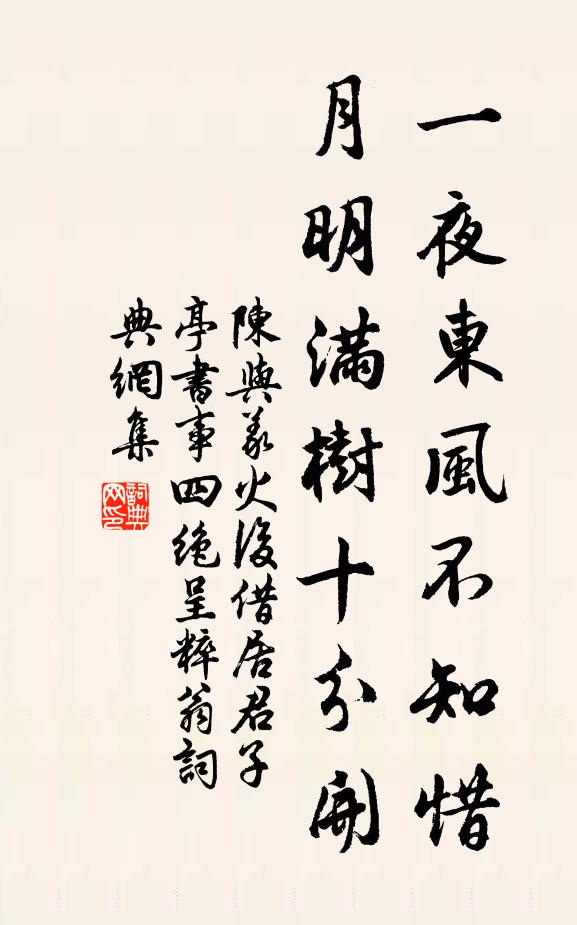 一夜東風不知惜
月明滿樹十分開
陳與義火後借居君子
亭書事四絕呈粹翁詞
典網集
詞典
网印